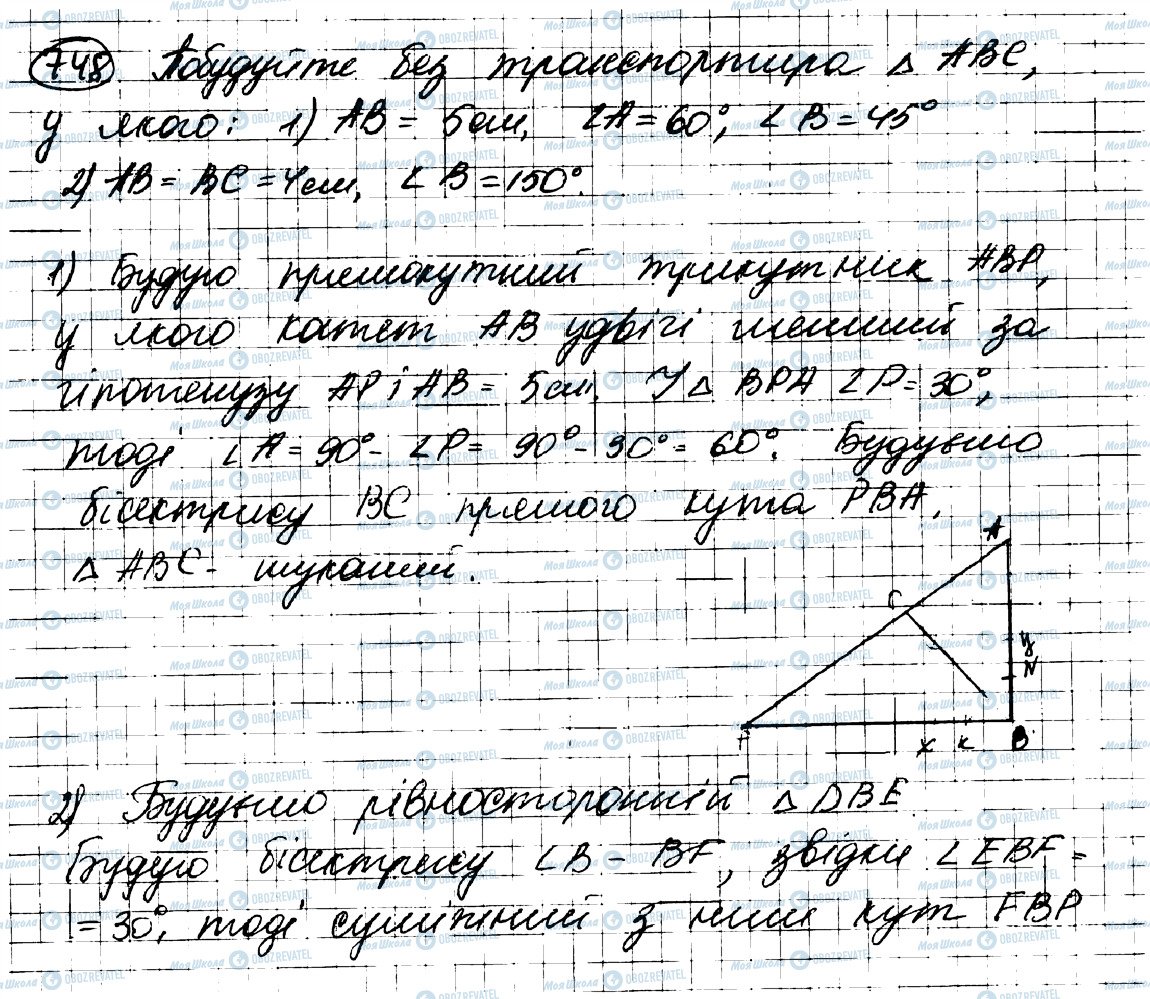 748 Побудуйте без транспортира △ ABC,
у якого: 1) AB = 5 см, ∠A = 60°, ∠B = 45°
2) AB = BC = 4 см, ∠B = 150°.
1) Будую прямокутний трикутник ABP,
у якого катет AB удвічі менший за
гіпотенузу AP і AB = 5 см. У △ BPA ∠P = 30°,
тоді ∠A = 90° - ∠P = 90° - 30° = 60°. Будуємо
бісектрису BC прямого кута PBA.
△ ABC - шуканий.
A
C
y
N
P x K B
2) Будуємо рівносторонній △ DBE
Будую бісектрису ∠B - BF, звідки ∠EBF =
= 30°, тоді суміжний з ним кут FBP